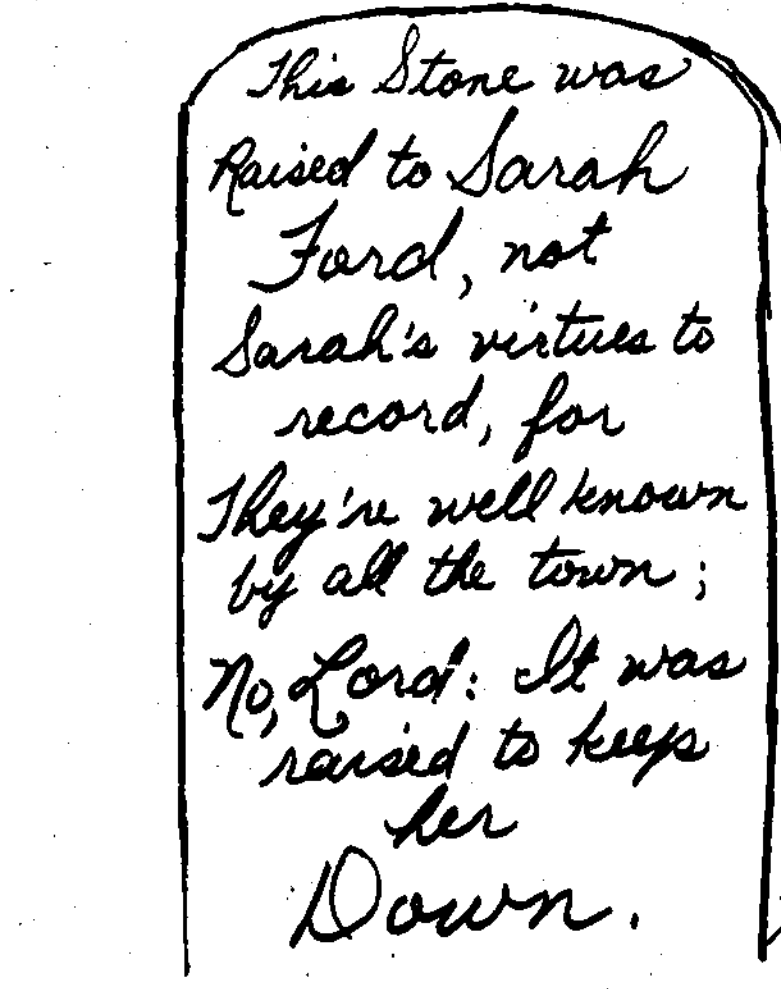 This Stone was
Raised to Sarah
Ford, not
Sarah's virtues to
record, for
They're well known
by all the town;
No, Lord: It was
raised to keep
her
Down.